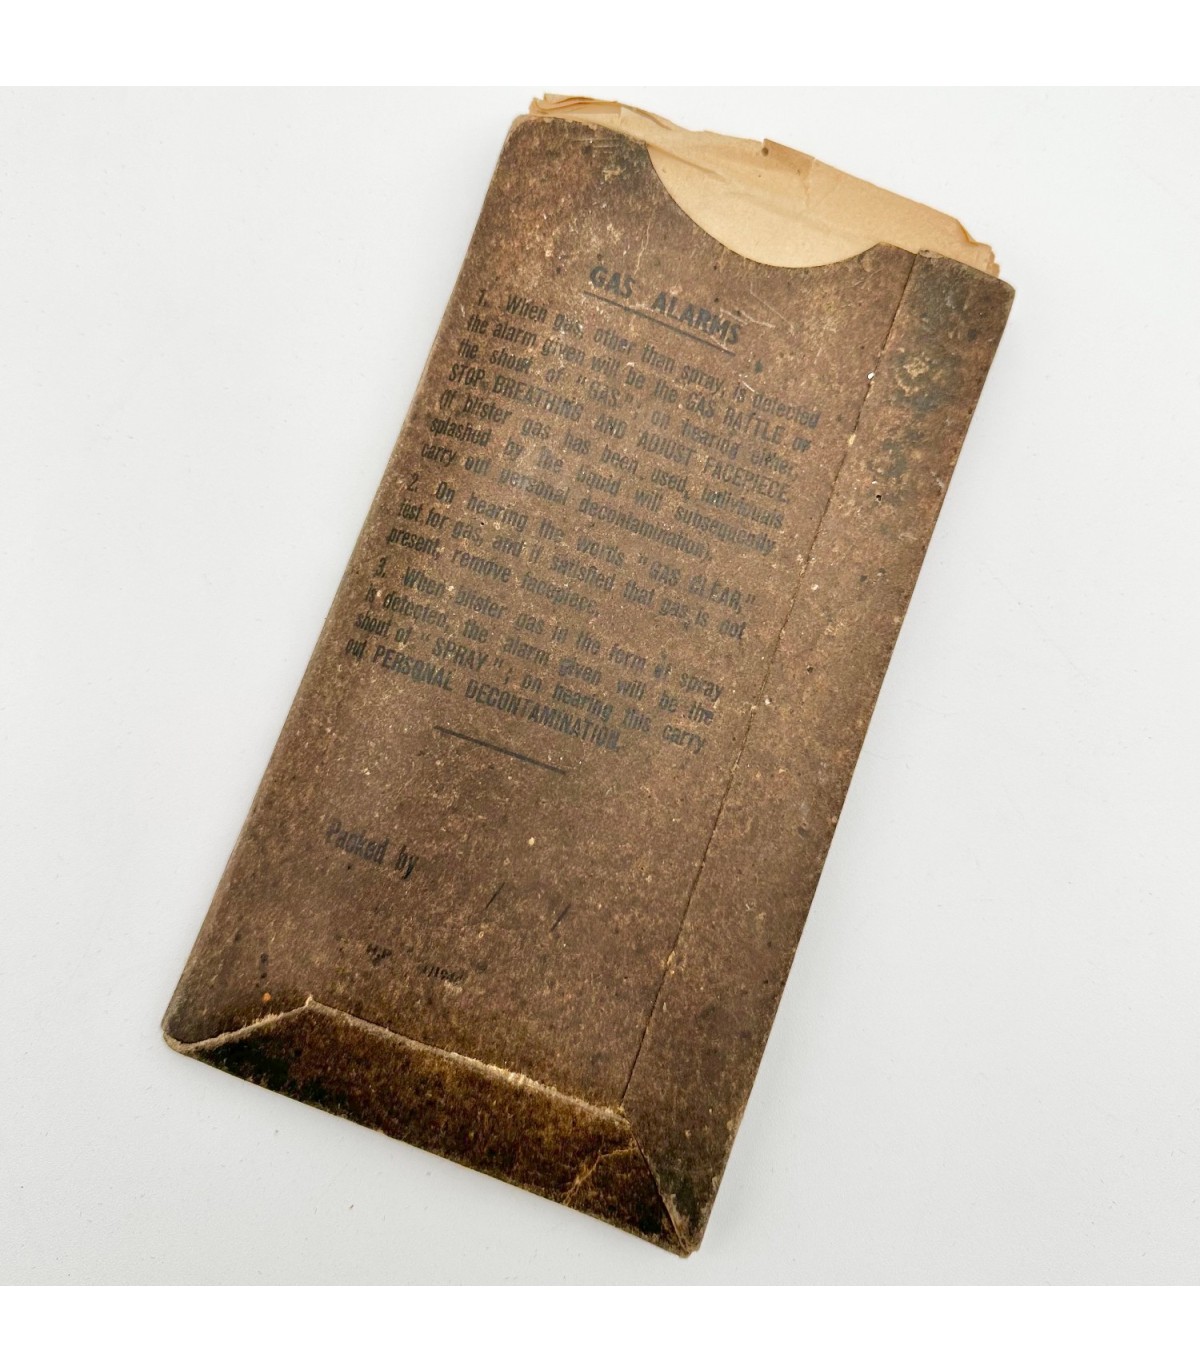 GAS ALARMS
1. When gas, other than spray, is detected
the alarm given will be the GAS RATTLE or
the shout of "GAS"; on hearing either
STOP BREATHING AND ADJUST FACEPIECE.
(If blister gas has been used, individuals
splashed by the liquid will subsequently
carry out personal decontamination).
2. On hearing the words "GAS CLEAR,"
test for gas, and if satisfied that gas is not
present, remove facepiece.
3. When blister gas in the form of spray
is detected, the alarm given will be the
shout of "SPRAY"; on hearing this carry
out PERSONAL DECONTAMINATION.
Packed by / /